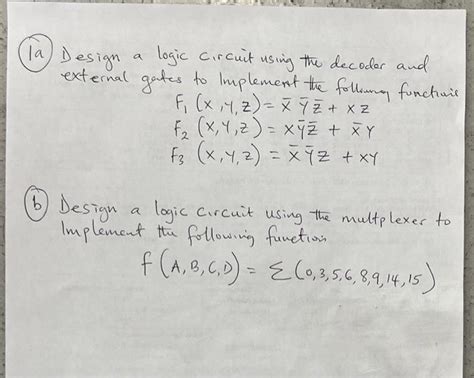 1a Design a logic circuit using the decoder and
external gates to Implement the following functions
F₁ (X,Y,Z) = X̄ Ȳ Z̄ + XZ
F₂ (X,Y,Z) = XȲZ̄ + X̄Y
F₃ (X,Y,Z) = X̄ȲZ + XY
b Design a logic circuit using the multplexer to
Implement the following function
f (A,B,C,D) = Σ(0,3,5,6,8,9,14,15)